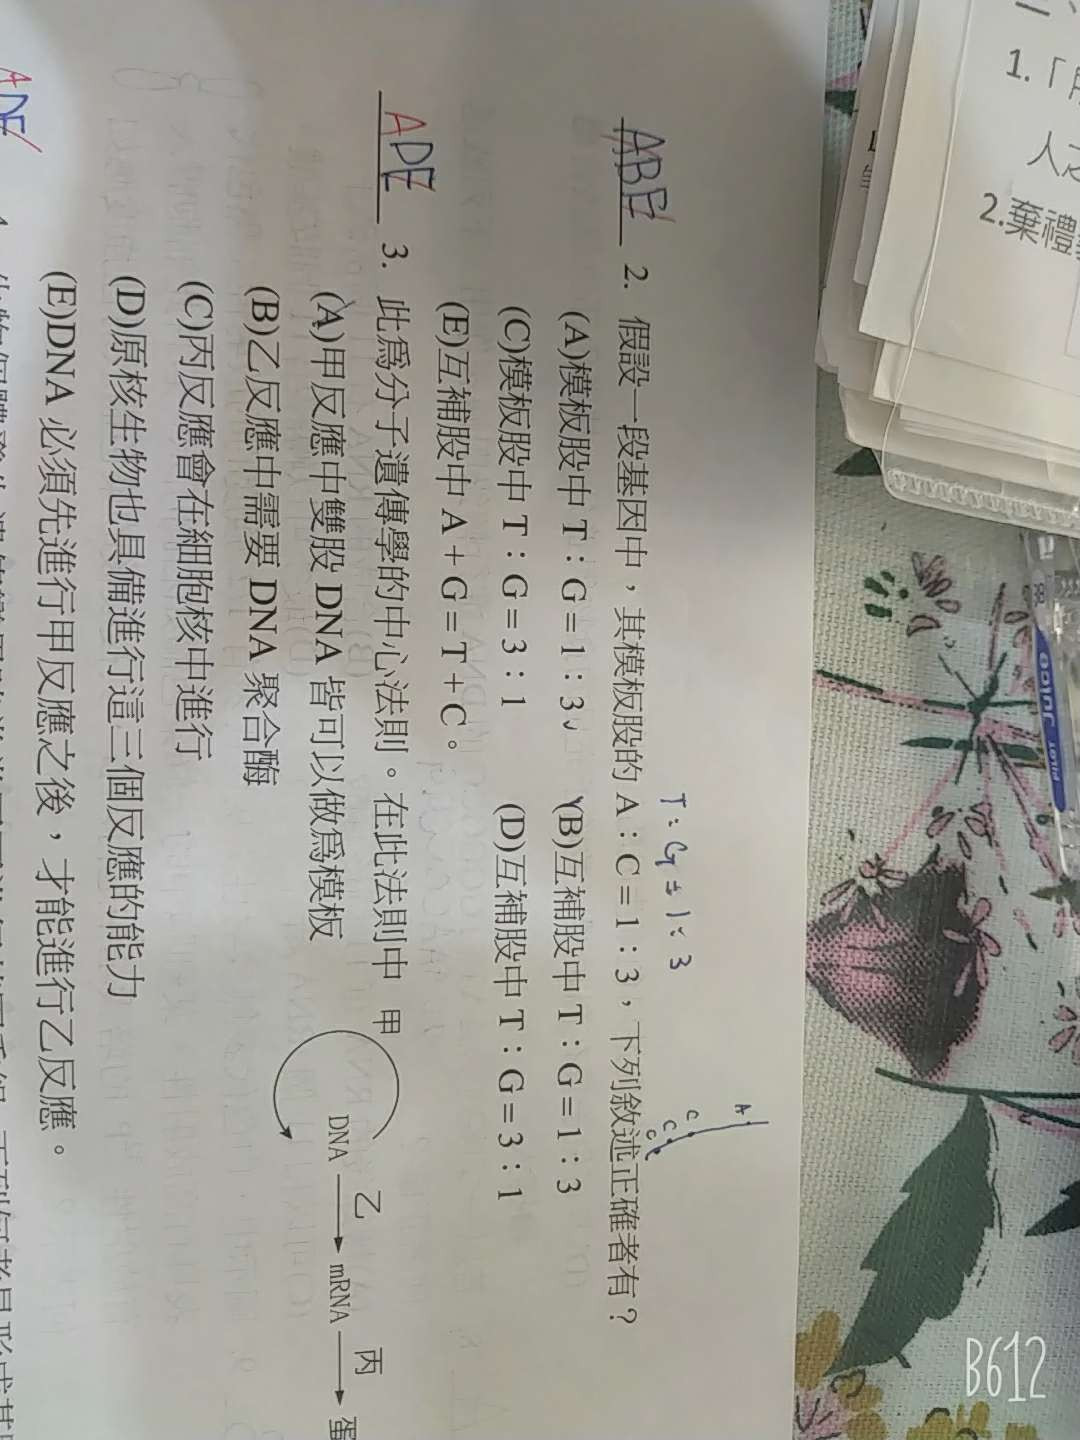 二、
1.「
人之
2.棄禮
T : G = 1 : 3
A
C
C
C
ABE 2. 假設一段基因中，其模板股的 A：C = 1：3，下列敘述正確者有？
(A)模板股中 T：G = 1：3 (B)互補股中 T：G = 1：3
(C)模板股中 T：G = 3：1 (D)互補股中 T：G = 3：1
(E)互補股中 A + G = T + C。
ADE 3. 此為分子遺傳學的中心法則。在此法則中
(A)甲反應中雙股 DNA 皆可以做為模板
(B)乙反應中需要 DNA 聚合酶
(C)丙反應會在細胞核中進行
(D)原核生物也具備進行這三個反應的能力
(E)DNA 必須先進行甲反應之後，才能進行乙反應。
甲 乙 丙
DNA mRNA 蛋
ADE
Juice
PILOT
B612